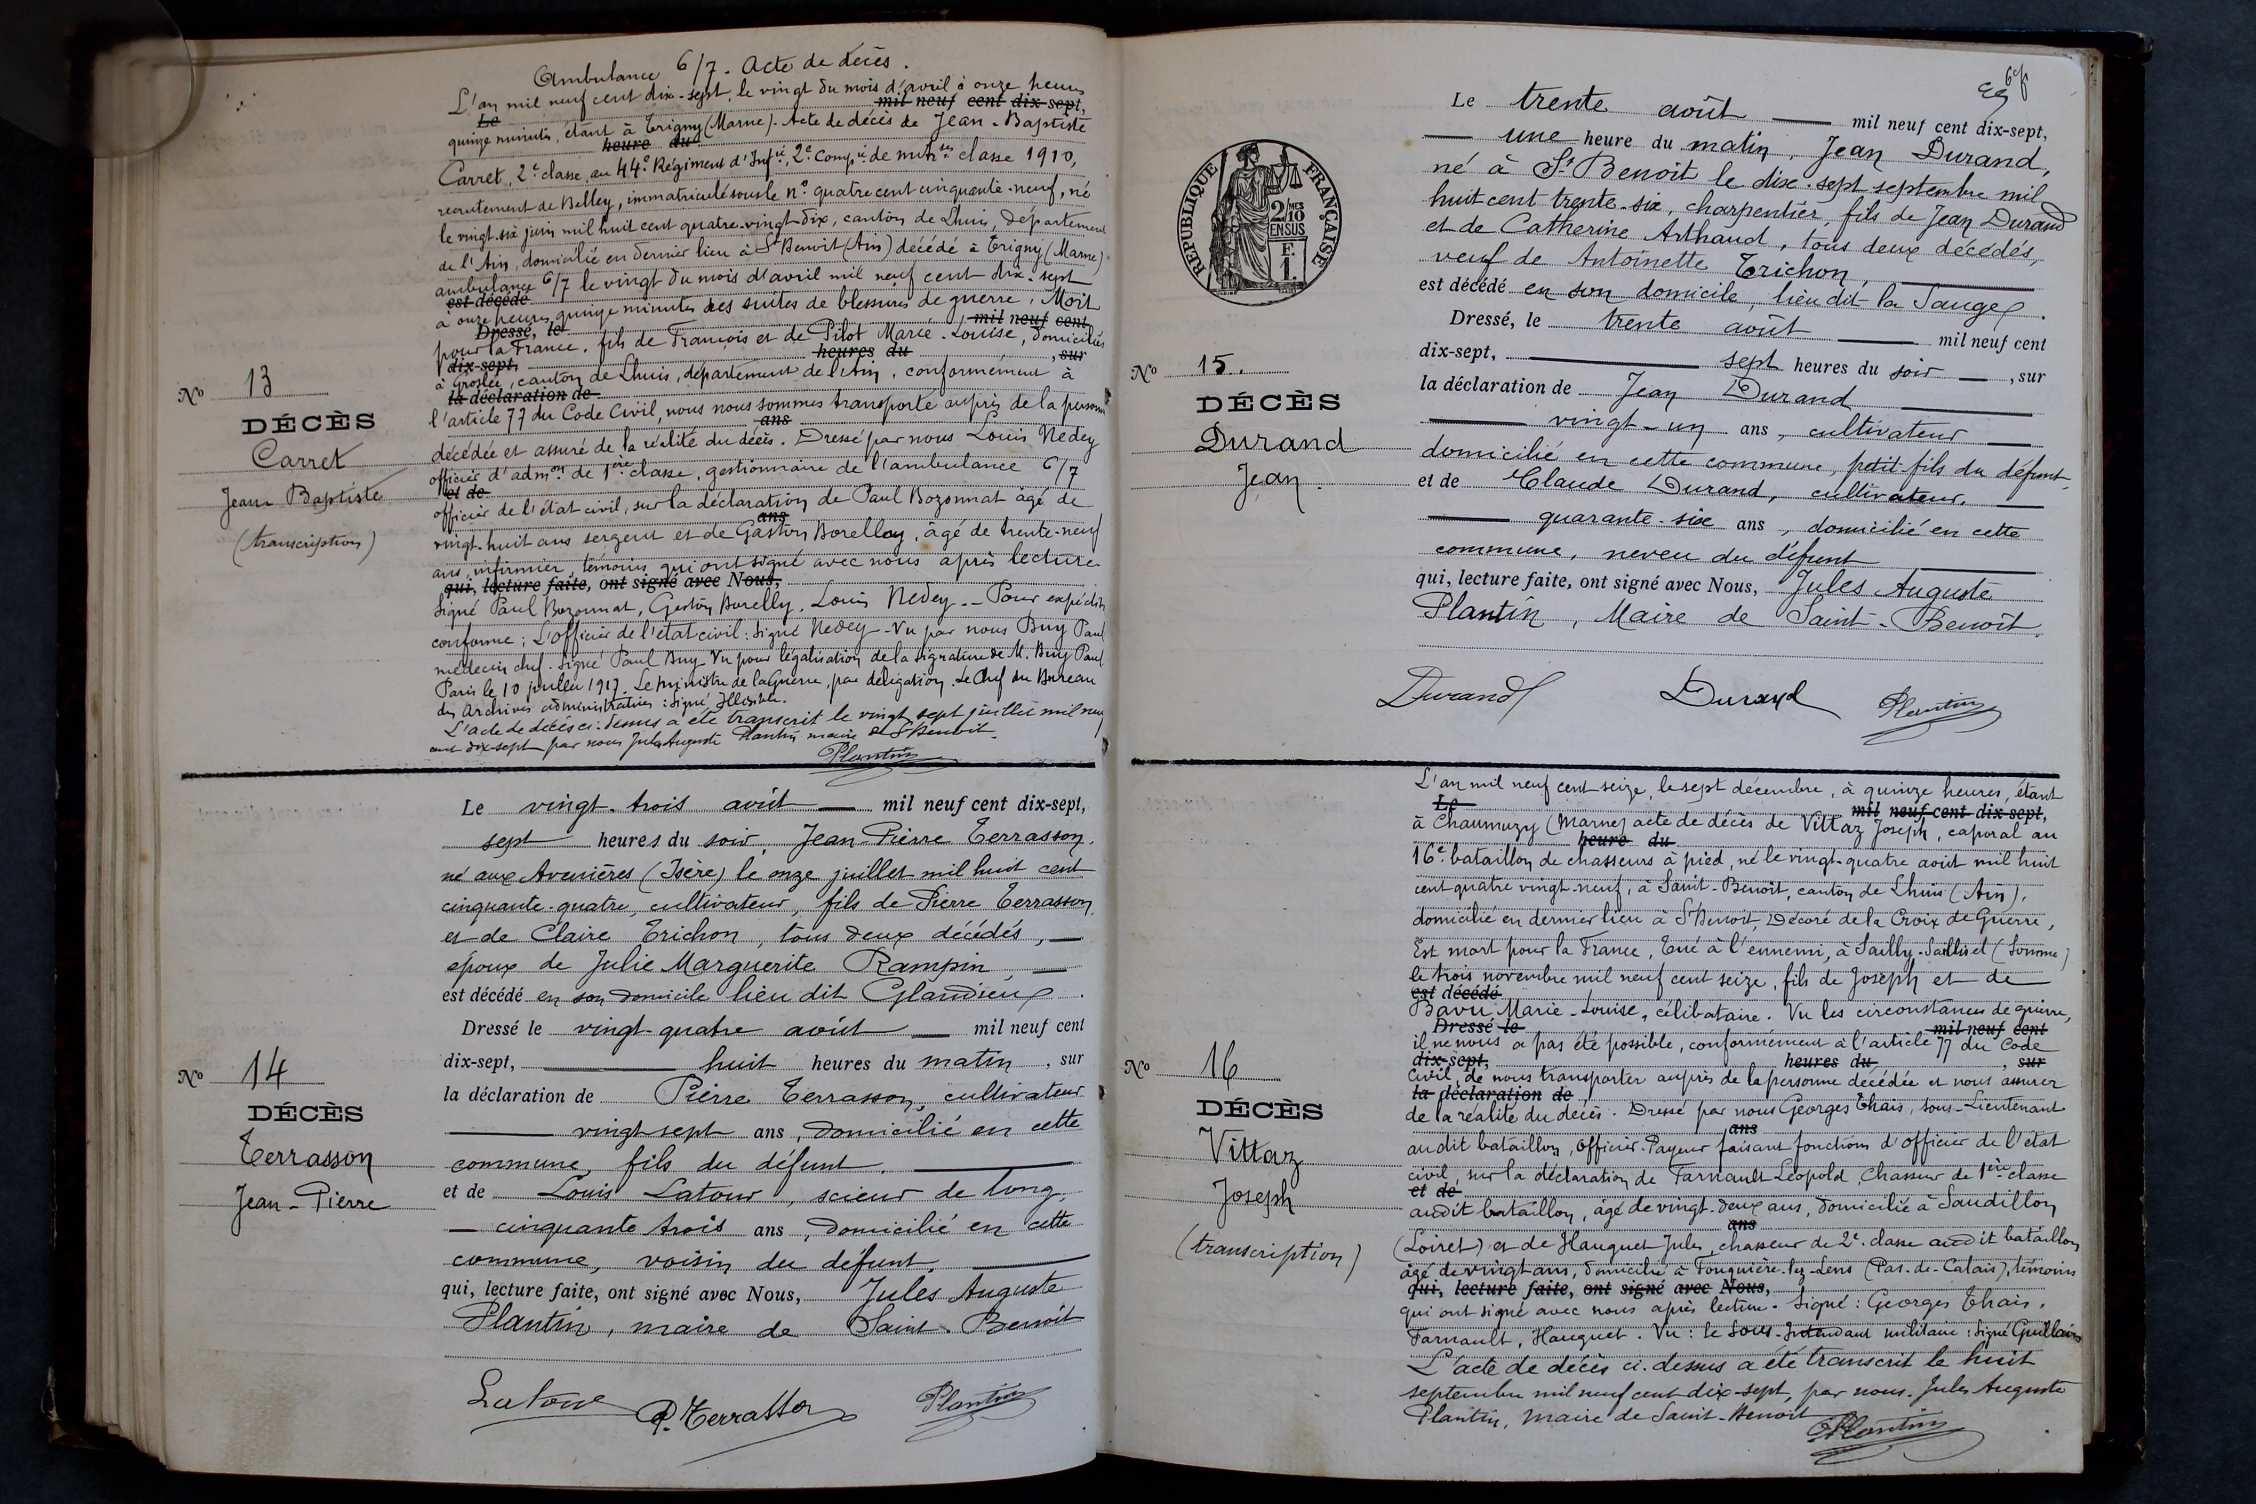 Ambulance 6/7. Acte de décès.
L'an mil neuf cent dix-sept, le vingt du mois d'avril à onze heures
Le mil neuf cent dix-sept,
quinze minutes, étant à Trigny (Marne). Acte de décès de Jean-Baptiste
heure du
Carret, 2e classe, au 44e Régiment d'Infie, 2e Compie de mitses classe 1910,
recrutement de Belley, immatriculé sous le no quatre cent cinquante-neuf, né
le vingt-six juin mil huit cent quatre-vingt-dix, canton de Lhuis, département
de l'Ain, domicilié en dernier lieu à St Benoit (Ain) décédé à Trigny (Marne)
ambulance 6/7 le vingt du mois d'avril mil neuf cent dix-sept
est décédé
à onze heures quinze minutes des suites de blessures de guerre, Mort
Dressé, le mil neuf cent
pour la France. fils de François et de Pilot Marie-Louise, domiciliés
dix-sept, heures du , sur
à Groslée, canton de Lhuis, département de l'Ain, conformément à
la déclaration de
l'article 77 du Code Civil, nous nous sommes transporté auprès de la personne
ans
décédée et assuré de la réalité du décès. Dressé par nous Louis Nedey
officier d'admon de 1ère classe, gestionnaire de l'ambulance 6/7
et de
officier de l'état civil, sur la déclaration de Paul Bozonnat âgé de
ans
vingt-huit ans sergent et de Gaston Borelly, âgé de trente-neuf
ans, infirmier, témoins qui ont signé avec nous après lecture
qui, lecture faite, ont signé avec Nous,
Signé Paul Bozonnat, Gaston Borelly, Louis Nedey. _ Pour expédition
conforme; L'officier de l'état civil: Signé Nedey - Vu par nous Buy Paul
médecin chef. Signé Paul Buy Vu pour légalisation de la signature de M. Buy Paul
Paris le 10 juillet 1917. Le ministre de la Guerre, par délégation. Le Chef du Bureau
des Archives administratives: Signé, Illisible.
L'acte de décès ci-dessus a été transcrit le vingt sept juillet mil neuf
cent dix-sept par nous Jules Auguste Plantin maire de St Benoit.
Plantin
No 13
DÉCÈS
Carret
Jean Baptiste
(transcription)
Le vingt-trois août mil neuf cent dix-sept,
sept heures du soir, Jean-Pierre Terrasson,
né aux Avenières (Isère) le onze juillet mil huit cent
cinquante-quatre, cultivateur, fils de Pierre Terrasson
et de Claire Trichon, tous deux décédés,
époux de Julie Marguerite Rampin,
est décédé en son domicile lieu dit Glandieux.
Dressé le vingt-quatre août mil neuf cent
dix-sept, huit heures du matin, sur
la déclaration de Pierre Terrasson, cultivateur
vingt sept ans, domicilié en cette
commune, fils du défunt.
et de Louis Latour, scieur de long,
cinquante trois ans, domicilié en cette
commune, voisin du défunt,
qui, lecture faite, ont signé avec Nous, Jules Auguste
Plantin, maire de Saint-Benoît
Latour P. Terrasson Plantin
No 14
DÉCÈS
Terrasson
Jean-Pierre
RÉPUBLIQUE FRANÇAISE
2/10MES
EN SUS
F.
1.
Le trente août mil neuf cent dix-sept,
une heure du matin, Jean Durand,
né à St Benoit le dix-sept septembre mil
huit cent trente-six, charpentier, fils de Jean Durand
et de Catherine Arthaud, tous deux décédés,
veuf de Antoinette Trichon,
est décédé en son domicile, lieu dit la Sauge.
Dressé, le trente août mil neuf cent
dix-sept, sept heures du soir, sur
la déclaration de Jean Durand
vingt-un ans, cultivateur
domicilié en cette commune, petit-fils du défunt,
et de Claude Durand, cultivateur,
quarante-six ans, domicilié en cette
commune, neveu du défunt
qui, lecture faite, ont signé avec Nous, Jules Auguste
Plantin, Maire de Saint-Benoît.
Durand Durand Plantin
No 15.
DÉCÈS
Durand
Jean.
L'an mil neuf cent seize, le sept décembre, à quinze heures, étant
Le mil neuf cent dix-sept,
à Chaumuzy (Marne) acte de décès de Vittaz Joseph, caporal au
heure du
16e bataillon de chasseurs à pied, né le vingt-quatre août mil huit
cent quatre vingt-neuf, à Saint-Benoît, canton de Lhuis (Ain),
domicilié en dernier lieu à St Benoit, Décoré de la Croix de Guerre,
Est mort pour la France, Tué à l'ennemi, à Sailly-Saillisel (Somme)
le trois novembre mil neuf cent seize, fils de Joseph et de
est décédé
Bavu Marie-Louise, célibataire. Vu les circonstances de guerre,
Dressé le mil neuf cent
il ne nous a pas été possible, conformément à l'article 77 du Code
dix-sept, heures du , sur
Civil, de nous transporter auprès de la personne décédée et nous assurer
la déclaration de
de la réalité du décès. Dressé par nous Georges Thais, sous-Lieutenant
ans
audit bataillon, Officier Payeur faisant fonctions d'officier de l'état
civil, sur la déclaration de Farnault Léopold, Chasseur de 1ère classe
et de
audit bataillon, âgé de vingt-deux ans, domicilié à Sandillon
ans
(Loiret) et de Hauguet Jules, chasseur de 2e classe audit bataillon
âgé de vingt ans, domicilié à Fouquière-lez-Lens (Pas-de-Calais), témoins
qui, lecture faite, ont signé avec Nous,
qui ont signé avec nous après lecture. Signé: Georges Thais,
Farnault, Hauguet. Vu: le Sous-Intendant militaire: Signé Guillain
L'acte de décès ci-dessus a été transcrit le huit
septembre mil neuf cent dix-sept, par nous Jules Auguste
Plantin, Maire de Saint-Benoit
Plantin
No 16
DÉCÈS
Vittaz
Joseph
(transcription)